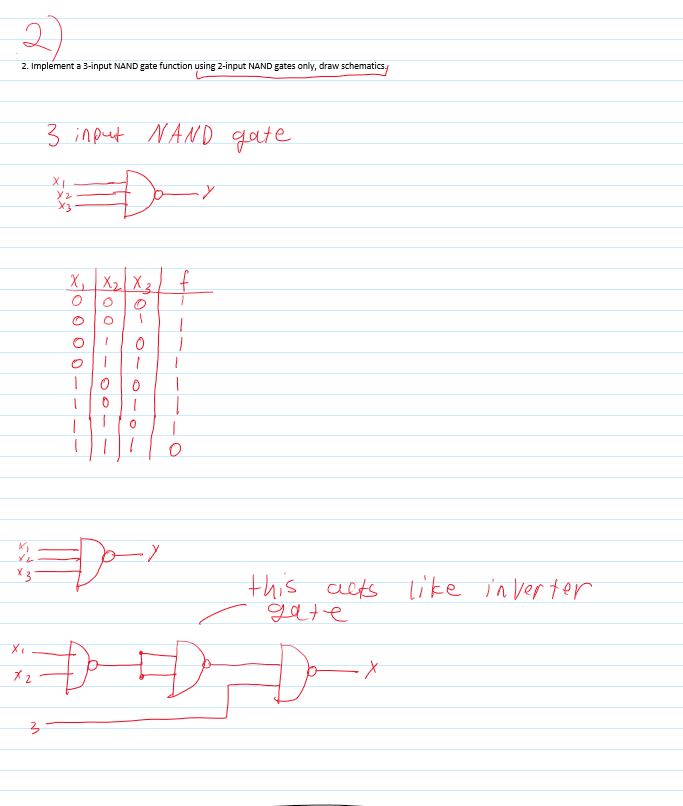 2)
2. Implement a 3-input NAND gate function using 2-input NAND gates only, draw schematics.
3 input NAND gate
x1
x2
x3
y
x1 x2 x3 f
0 0 0 1
0 0 1 1
0 1 0 1
0 1 1 1
1 0 0 1
1 0 1 1
1 1 0 1
1 1 1 0
x1
x2
x3
y
this acts like inverter
gate
x1
x2
3
x